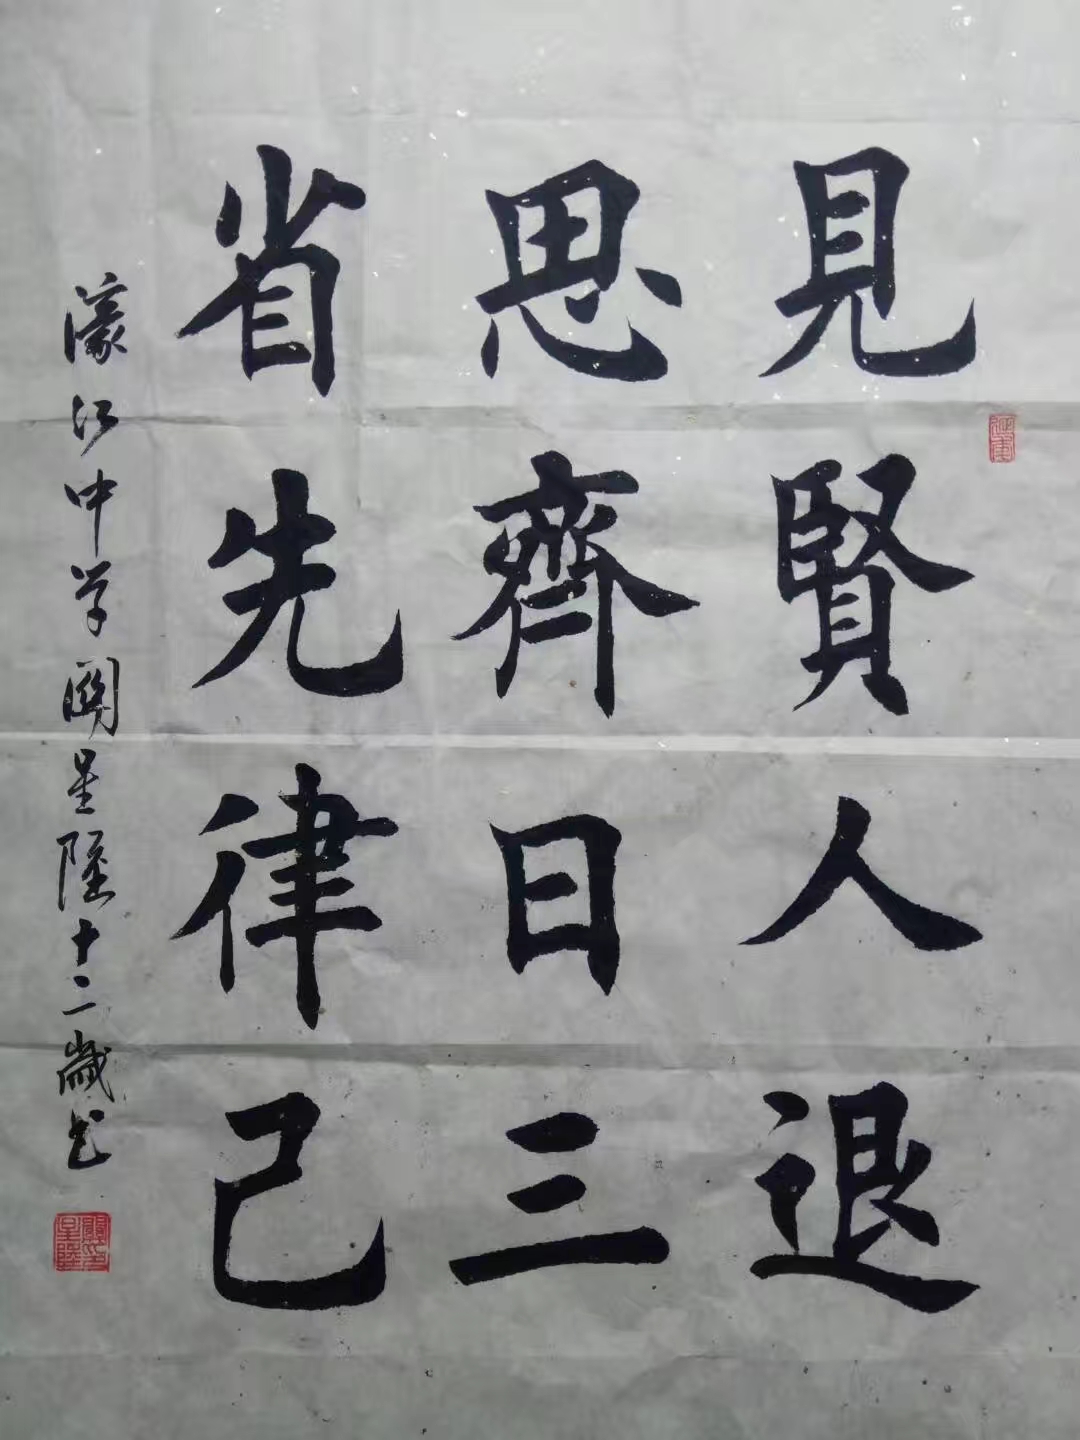 見賢人退
思齊日三
省先律己
濠江中学關星陸十二歲书